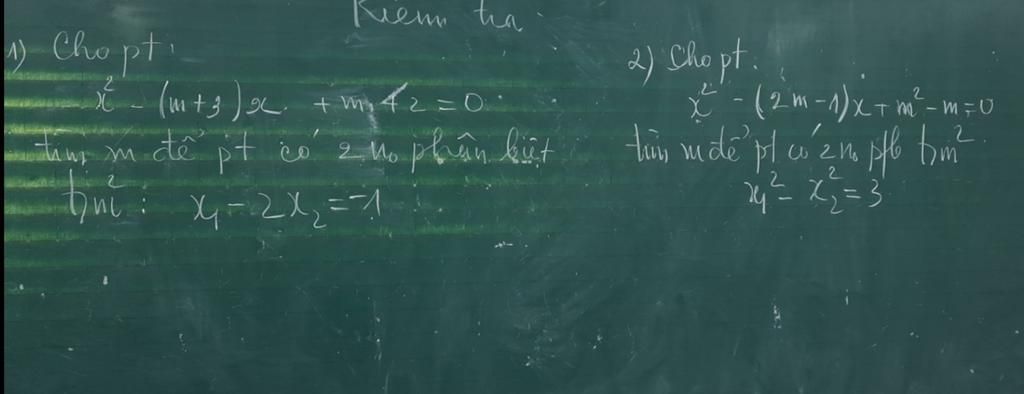 Kiểm tra.
1) Cho pt:
x² - (m+3)x + m + 2 = 0
tìm m để pt có 2 no phân biệt
tm²: x₁ - 2x₂ = -1
2) Cho pt:
x² - (2m-1)x + m² - m = 0
tìm m để pt có 2 no pfb tm²
x₁² - x₂² = 3